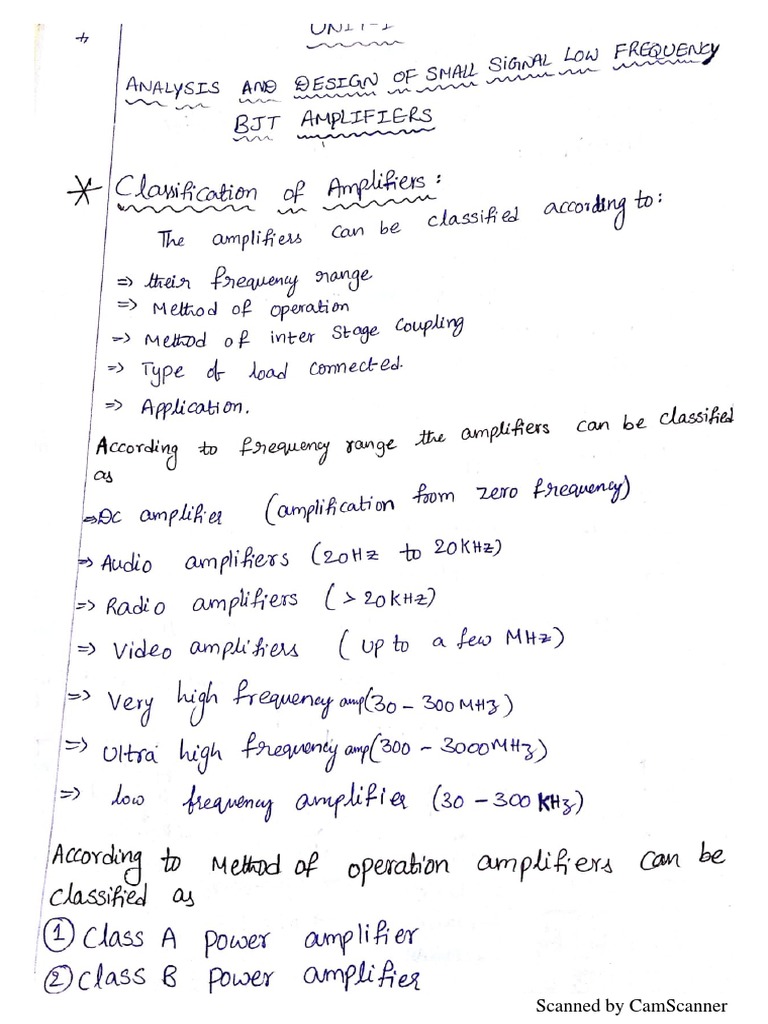 UNIT-1
ANALYSIS AND DESIGN OF SMALL SIGNAL LOW FREQUENCY
BJT AMPLIFIERS
* Classification of Amplifiers:
The amplifiers can be classified according to:
=> their frequency range
=> Method of operation
=> Method of inter stage coupling
=> Type of load connected.
=> Application.
According to frequency range the amplifiers can be classified
as
=> DC amplifier (amplification from zero frequency)
=> Audio amplifiers (20Hz to 20KHz)
=> Radio amplifiers (> 20KHz)
=> Video amplifiers (up to a few MHz)
=> Very high frequency amp (30 - 300 MHz)
=> Ultra high frequency amp (300 - 3000 MHz)
=> low frequency amplifier (30 - 300 KHz)
According to Method of operation amplifiers can be
classified as
① Class A power amplifier
② Class B power amplifier
Scanned by CamScanner